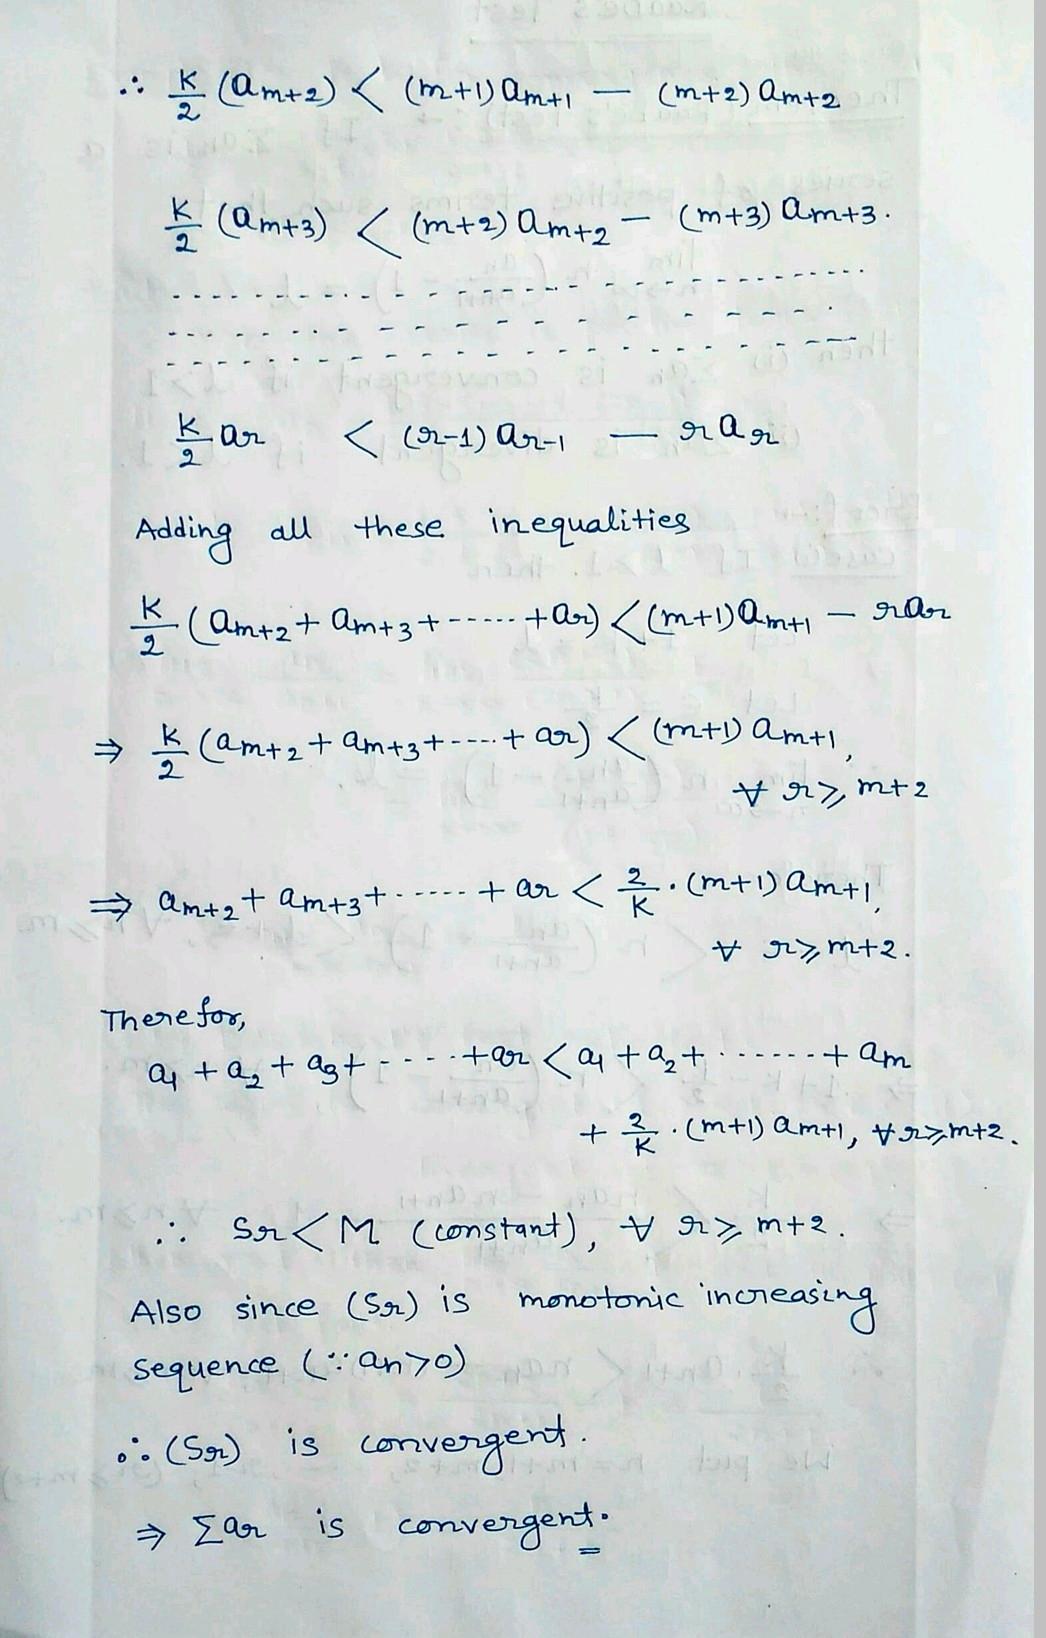 ∴ K/2 (am+2) < (m+1) am+1 — (m+2) am+2
K/2 (am+3) < (m+2) am+2 — (m+3) am+3.
K/2 ar < (r-1) ar-1 — r ar
Adding all these inequalities
K/2 (am+2 + am+3 + ----- + ar) < (m+1) am+1 — r ar
⇒ K/2 (am+2 + am+3 + ---- + ar) < (m+1) am+1,
∀ r ⩾ m+2
⇒ am+2 + am+3 + ------ + ar < 2/K · (m+1) am+1,
∀ r ⩾ m+2.
Therefor,
a1 + a2 + a3 + ---- + ar < a1 + a2 + ------ + am
+ 2/K · (m+1) am+1, ∀ r ⩾ m+2.
∴ Sr < M (constant), ∀ r ⩾ m+2.
Also since (Sr) is monotonic increasing
sequence (∵ an>0)
∴ (Sr) is convergent.
⇒ Σar is convergent.